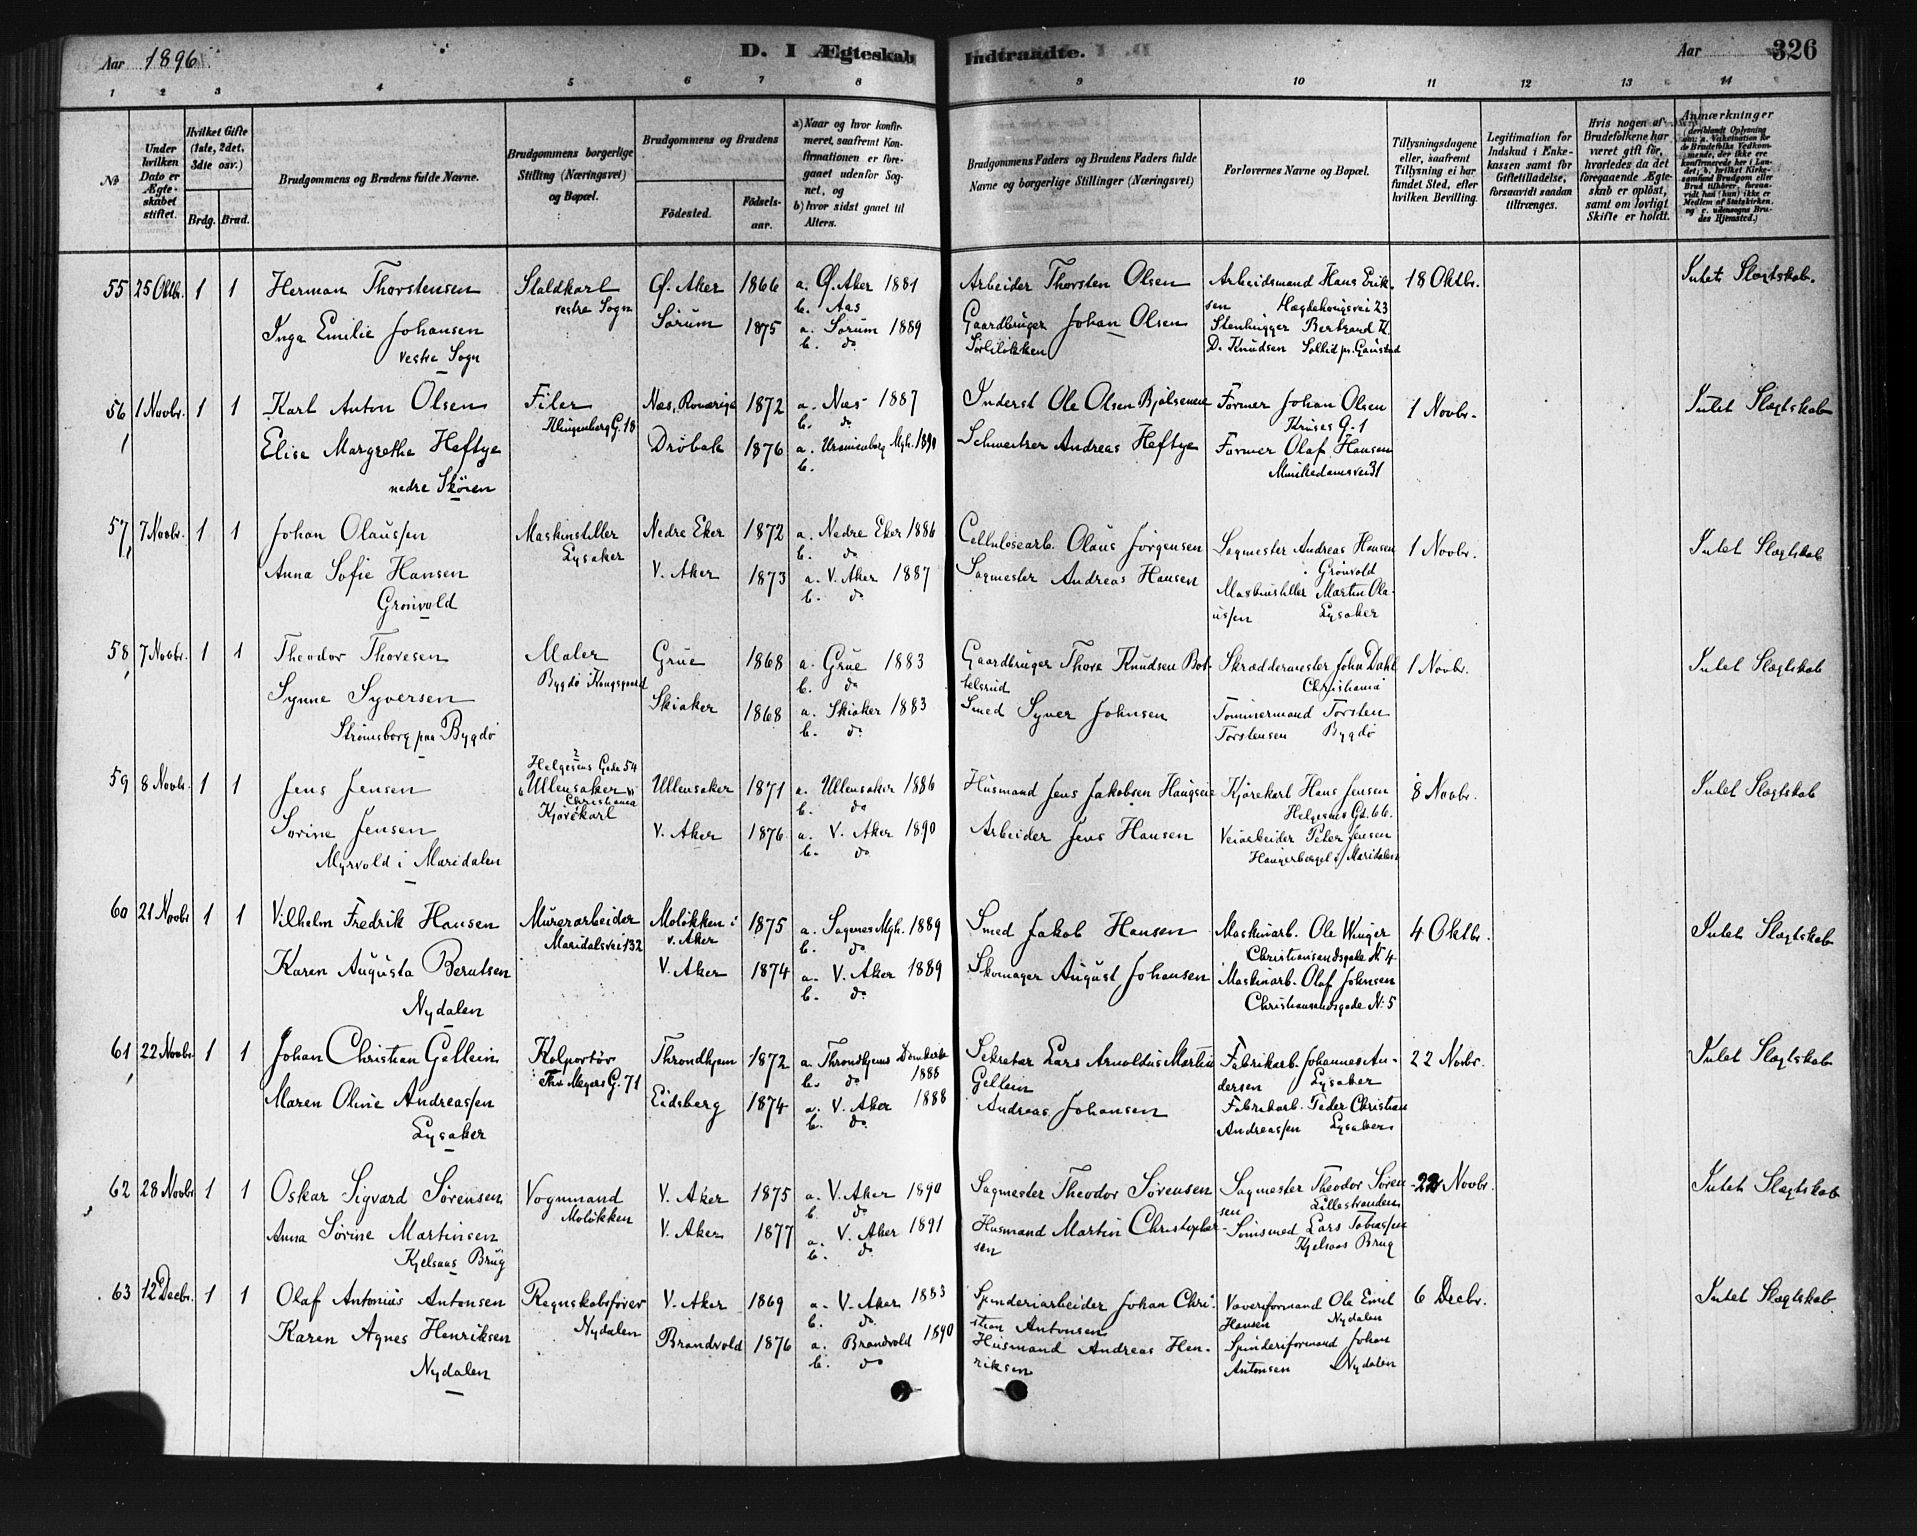 Aar 1896.
D. I Ægteskab Indtraadte.
Aar 326
1 2 3 4 5 6 7 8 9 10 11 12 13 14
No
Under hvilken Dato er Ægteskabet stiftet.
Hvilket Gifte (1ste, 2det, 3die osv.)
Brdg. Brud.
Brudgommens og Brudens fulde Navne.
Brudgommens borgerlige Stilling (Næringsvei) og Bopæl.
Brudgommens og Brudens
Fødested.
Fødselsaar.
a) Naar og hvor konfirmeret, saafremt Konfirmationen er foregaaet udenfor Sognet, og
b) hvor sidst gaaet til Alters.
Brudgommens Faders og Brudens Faders fulde Navne og borgerlige Stillinger (Næringsvei)
Forlovernes Navne og Bopæl.
Tillysningsdagene eller, saafremt Tillysning ei har fundet Sted, efter hvilken Bevilling.
Legitimation for Indskud i Enkekassen samt for Giftetilladelse, forsaavidt saadan tiltrænges.
Hvis nogen af Brudefolkene har været gift før, hvorledes da det foregaaende Ægteskab er opløst, samt om lovligt Skifte er holdt.
Anmærkninger (deriblandt Oplysning om: a. Vaksination for de Brudefolks Vedkommende, der ikke ere konfirmerede her i Landet; b. hvilket Kirkesamfund Brudgom eller Brud tilhører, forsaavidt han (hun) ikke er Medlem af Statskirken, og c. udensogns Brudes Hjemsted.)
55 25 Oktb. 1 1 Herman Thorstensen Staldkarl Ø. Aker 1866 a. Ø. Aker 1881 Arbeider Thorsten Olsen Arbeidsmand Hans Erik- 18 Oktbr. Intet Slægtskab.
vestre Sogn b. Aas sen Hægdehougsvei 23
Inga Emilie Johansen Sørum 1875 a. Sørum 1889 Gaardbruger Johan Olsen Stenhugger Bertrand K.
vestre Sogn b. do Sørliløkken D. Knudsen Sollid pr. Gaustad
56 1 Novbr. 1 1 Karl Anton Olsen Filer Næs, Romerige 1872 a. Næs 1887 Inderst Ole Olsen Bjølseneie Former Johan Olsen 1 Novbr. Intet Slægtskab
Klingenberg G. 18 b. do Kruses G. 1
Elise Margrethe Heftye Drøbak 1876 a. Uranienborg Mgh. 1890 Schweitzer Andreas Heftye Former Olaf Hansen
nedre Skøien b. Munkedamsvei 31
57 7 Novbr. 1 1 Johan Olaussen Maskinstiller Nedre Eker 1872 a. Nedre Eker 1886 Cellulosearb. Olaus Jørgensen Sagmester Andreas Hansen 1 Novbr. Intet Slægtskab
Lysaker b. do Grønvold
Anna Sofie Hansen V. Aker 1873 a. V. Aker 1887 Sagmester Andreas Hansen Maskinstiller Martin Ola-
Grønvold b. do ussen Lysaker
58 7 Novbr. 1 1 Theodor Thoresen Maler Grue 1868 a. Grue 1883 Gaardbruger Thore Knudsen Bot- Skræddermester John Dahl 1 Novbr. Intet Slægtskab
Bygdø Kongsgaard b. do telsrud Christiania
Synne Syversen Skiaker 1868 a. Skiaker 1883 Smed Syver Johnsen Tømmermand Torsten
Strømsborg paa Bygdø b. do Torstensen Bygdø
Helgesens Gade 54
59 8 Novbr. 1 1 Jens Jensen Ullensaker Ullensaker 1871 a. Ullensaker 1886 Husmand Jens Jakobsen Haugseie Kjørekarl Hans Jensen 8 Novbr. Intet Slægtskab
Christiania Kjørekarl b. do Helgesens Gd. 66.
Sorine Jensen V. Aker 1876 a. V. Aker 1890 Arbeider Jens Hansen Veiarbeider Peter Jensen
Myrvold i Maridalen b. do i Maridalen
60 21 Novbr 1 1 Vilhelm Fredrik Hansen Murerarbeider Moløkken i 1875 a. Sagenes Mgh. 1889 Smed Jakob Hansen Maskinarb. Ole Winger 4 Oktbr. Intet Slægtskab
Maridalsvei 132 V. Aker b. do Christiansandsgade N 4
Karen Augusta Berntsen V. Aker 1874 a. V. Aker 1889 Skomager August Johansen Maskinarb. Olaf Johnsen
Nydalen b. do Christiansandsgade N. 5
61 22 Novbr 1 1 Johan Christian Gellein Kolportør Throndhjem 1872 a. Throndhjems Domkirke 1888 Sekretær Lars Arnoldus Martin Fabrikarb. Johannes An- 22 Novbr. Intet Slægtskab
Thv. Meyers G. 71 b. do Gellein dersen Lysaker
Maren Oline Andreassen Eidsberg 1874 a. V. Aker 1888 Andreas Johansen Fabrikarb. Peder Christian
Lysaker b. do Andreassen Lysaker
62 28 Novbr 1 1 Oskar Sigvard Sørensen Vognmand V. Aker 1875 a. V. Aker 1890 Sagmester Theodor Sørensen Sagmester Theodor Søren- 22 Novbr. Intet Slægtskab
Moløkken b. do sen Lillestranden
Anna Sørine Martinsen V. Aker 1877 a. V. Aker 1891 Husmand Martin Christopher- Lars Tobiassen
Kjelsaas Brug b. do sen Kjelsaas Brug
63 12 Decbr. 1 1 Olaf Antonius Antonsen Regnskabsfører V. Aker 1869 a. V. Aker 1883 Spinderiarbeider Johan Chri- Væveriformand Ole Emil 6 Decbr. Intet Slægtskab
Nydalen b. do stian Antonsen Hansen Nydalen
Karen Agnes Henriksen Brandvold 1876 a. Brandvold 1890 Husmand Andreas Hen- Spinderiformand Johan
Nydalen b. do riksen Antonsen Nydalen